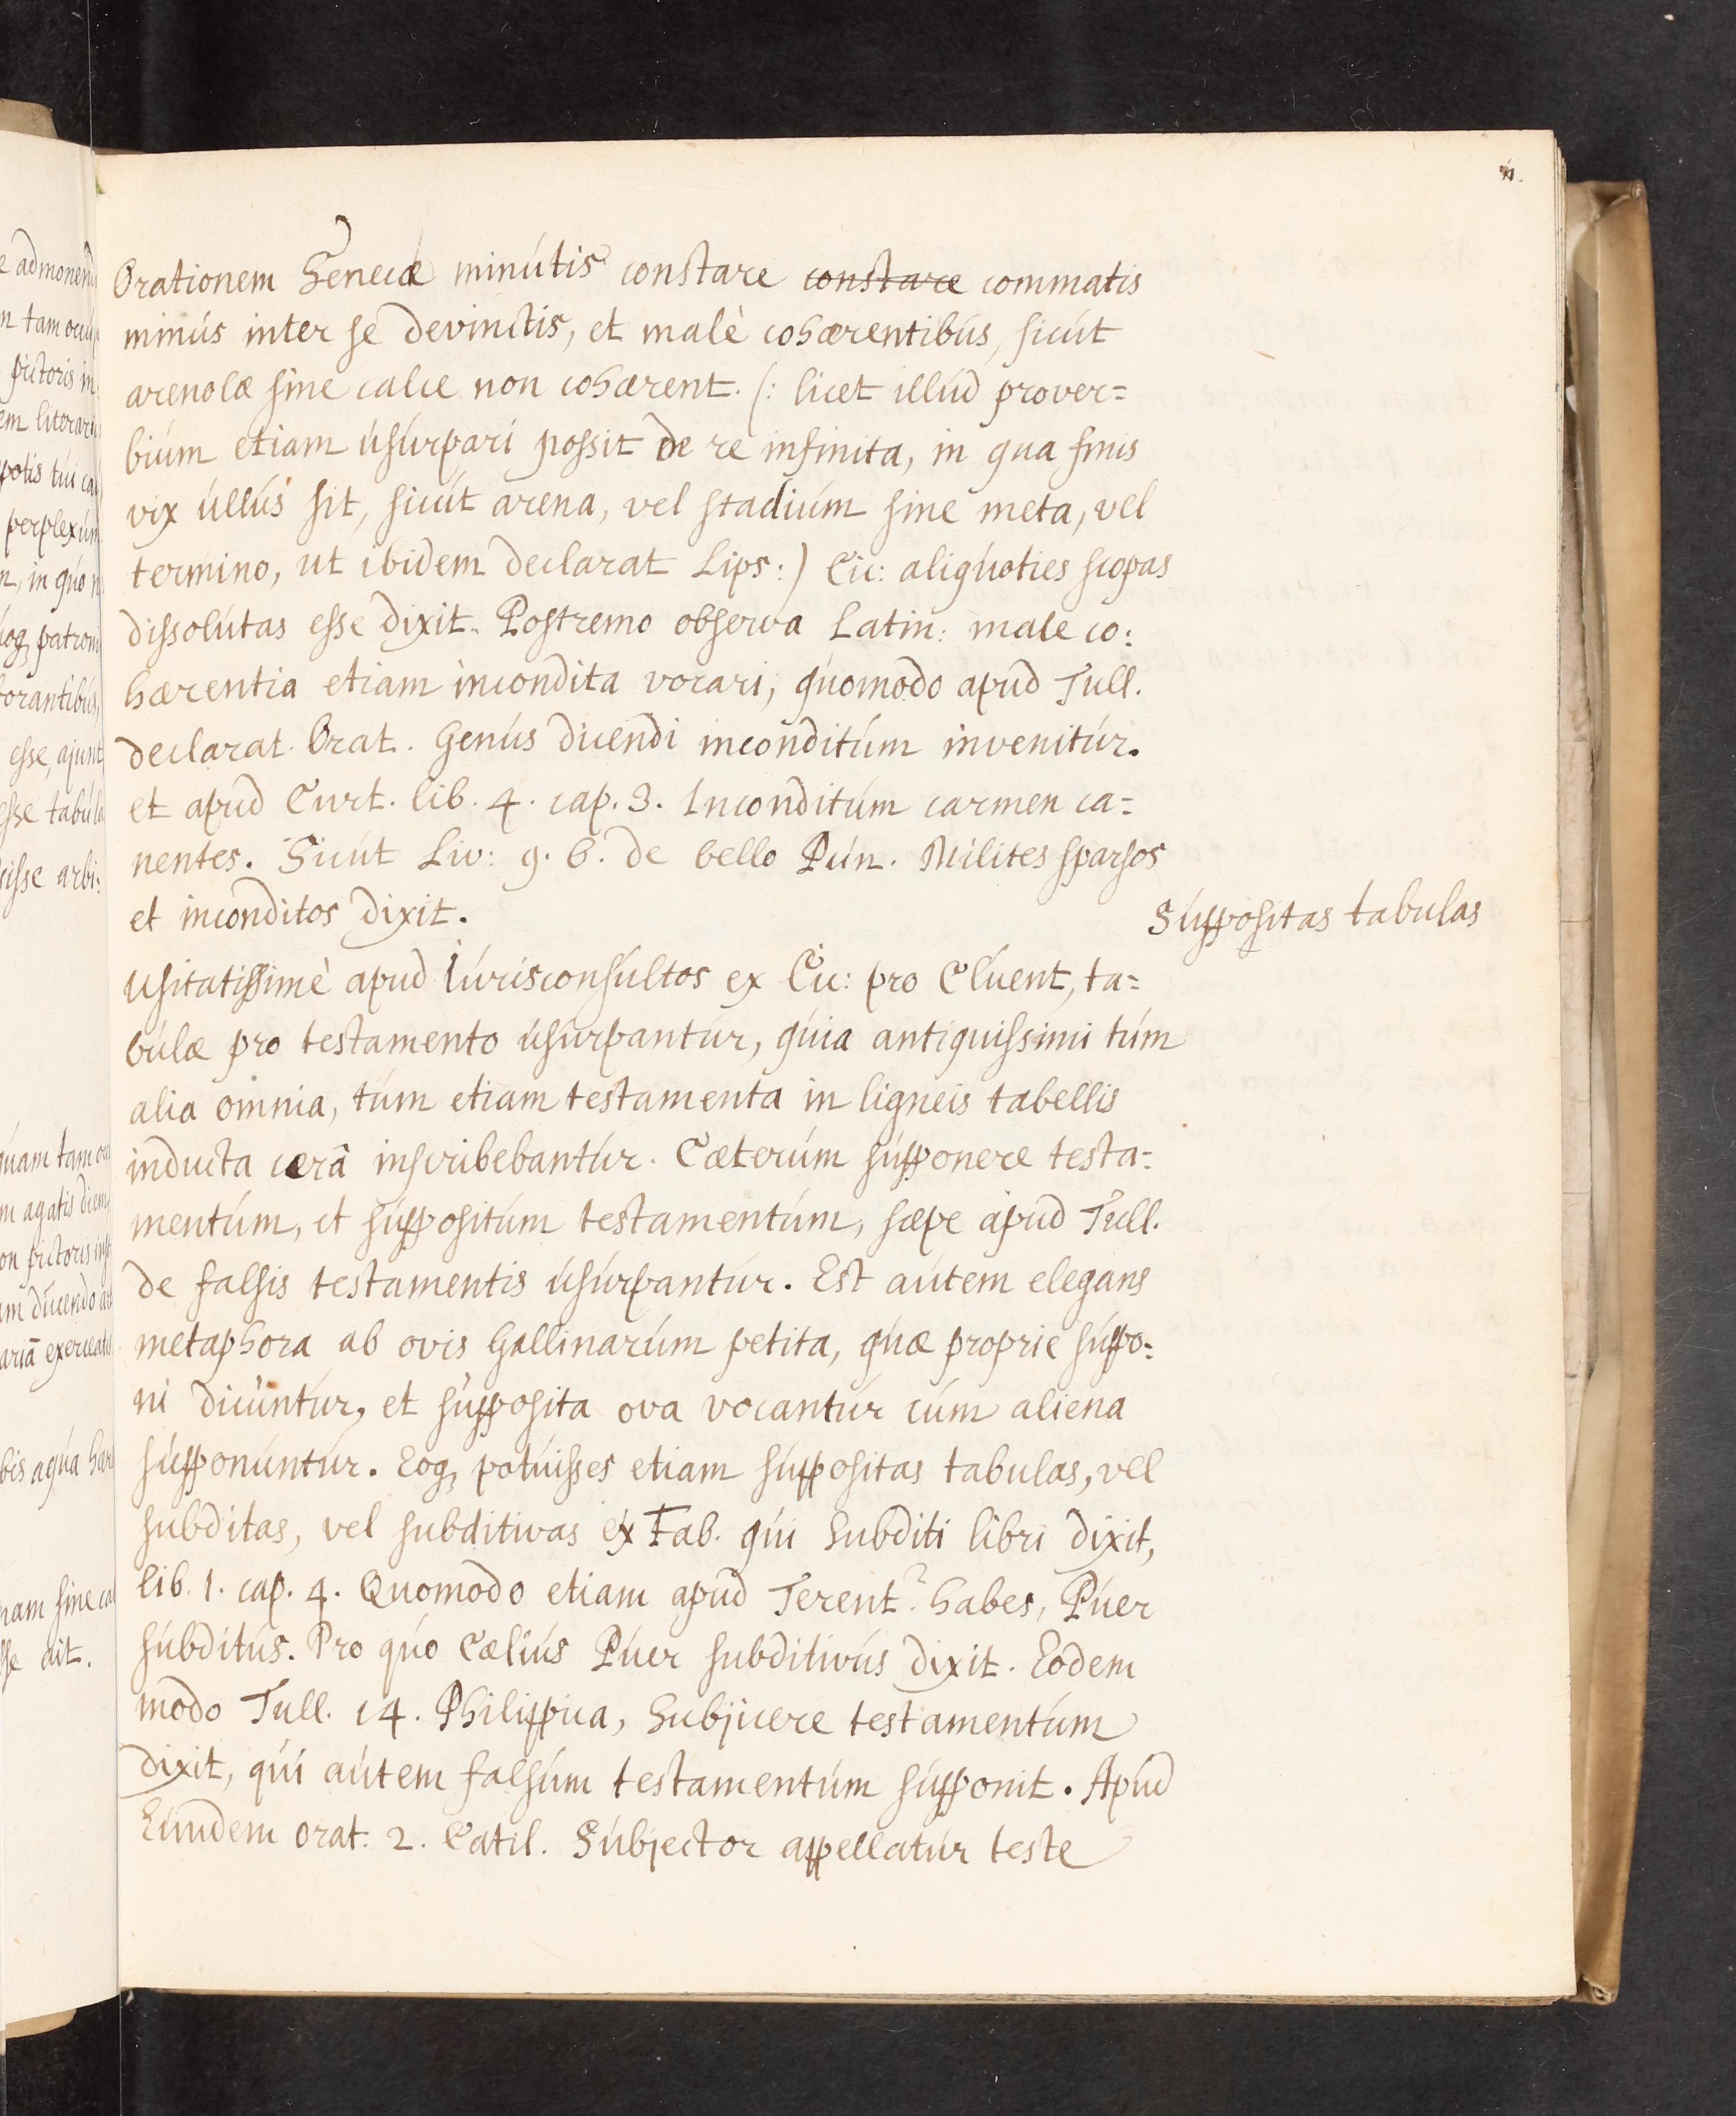 Orationem Senecæ minutis constare constare commatis
minus inter se devinctis, et malè cohærentibus, sicut
arenolæ sine calce non cohærent. (: licet illud prover=
bium etiam usurpari possit de re infinita, in qua finis
vix ullus sit, sicut arena, vel stadium sine meta, vel
termino, ut ibidem declarat Lips:) Cic: aliquoties scopas
dissolutas esse dixit. Postremo observa Latin: male co:
hærentia etiam incondita vocari, quomodo apud Tull.
declarat. Orat. Genus dicendi inconditum invenitur.
et apud Curt. lib. 4. cap. 3. Inconditum carmen ca=
nentes. Sicut Liv: 9. 6. de bello Pun. Milites sparsos
et inconditos dixit.
Suppositas tabulas
Usitatissimè apud Iurisconsultos ex Cic: pro Cluent, ta=
bulæ pro testamento usurpantur, quia antiquissimi tum
alia omnia, tum etiam testamenta in ligneis tabellis
inducta cerâ inscribebantur. Cæterum supponere testa=
mentum, et suppositum testamentum, sæpe apud Tull.
de falsis testamentis usurpantur. Est autem elegans
metaphora ab ovis Gallinarum petita, quæ proprie suppo=
ni dicuntur, et supposita ova vocantur cum aliena
supponuntur. Eoq, potuisses etiam suppositas tabulas, vel
subditas, vel subditivas ex Fab. qui Subditi libri dixit,
lib. 1. cap. 4. Quomodo etiam apud Terent. habes, Puer
subditus. Pro quo Cælius Puer subditivus dixit. Eodem
modo Tull. 14. Philippica, Subjicere testamentum
dixit, qui autem falsum testamentum supponit. Apud
Eundem orat: 2. Catil. Subjector appellatur teste